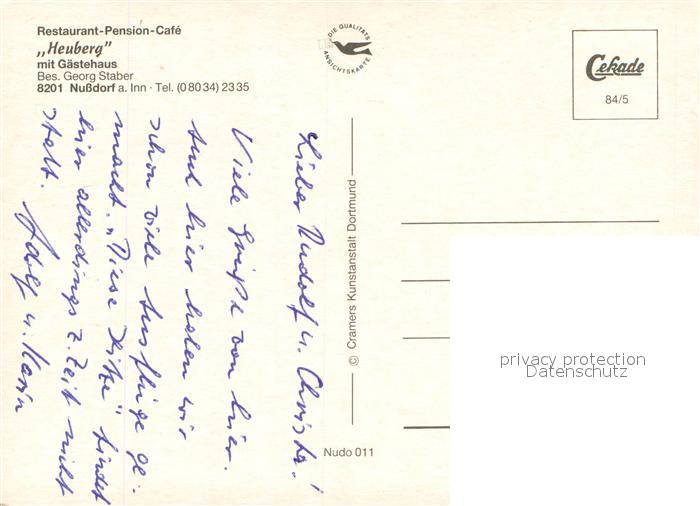 Restaurant-Pension-Café
„Heuberg"
mit Gästehaus
Bes. Georg Staber
8201 Nußdorf a. Inn · Tel. (0 80 34) 23 35
DIE QUALITÄTS
ANSICHTSKARTE
Cekade
84/5
Lieber Rudolf u. Christa!
Viele Grüße von hier.
Auch hier haben wir
schon viele Ausflüge ge-
macht. „Diese Hitze" findet
hier allerdings z. Zeit nicht
statt.
Adolf u. Karin
© Cramers Kunstanstalt Dortmund
Nudo 011
privacy protection
Datenschutz